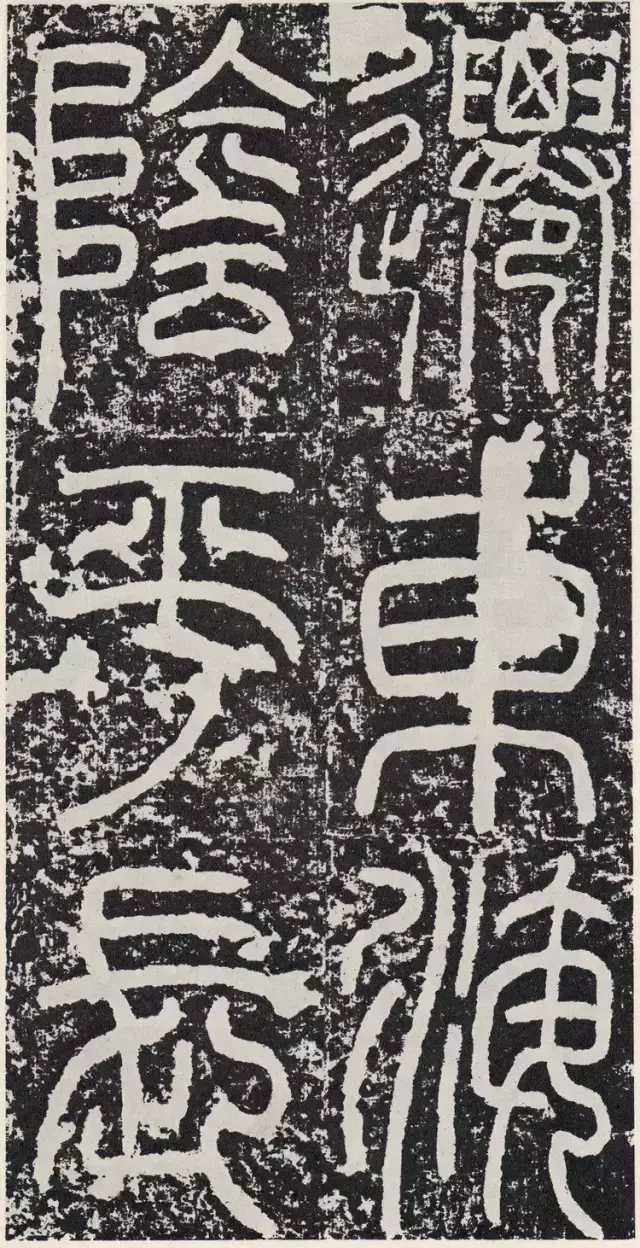 遷東海
陰平長